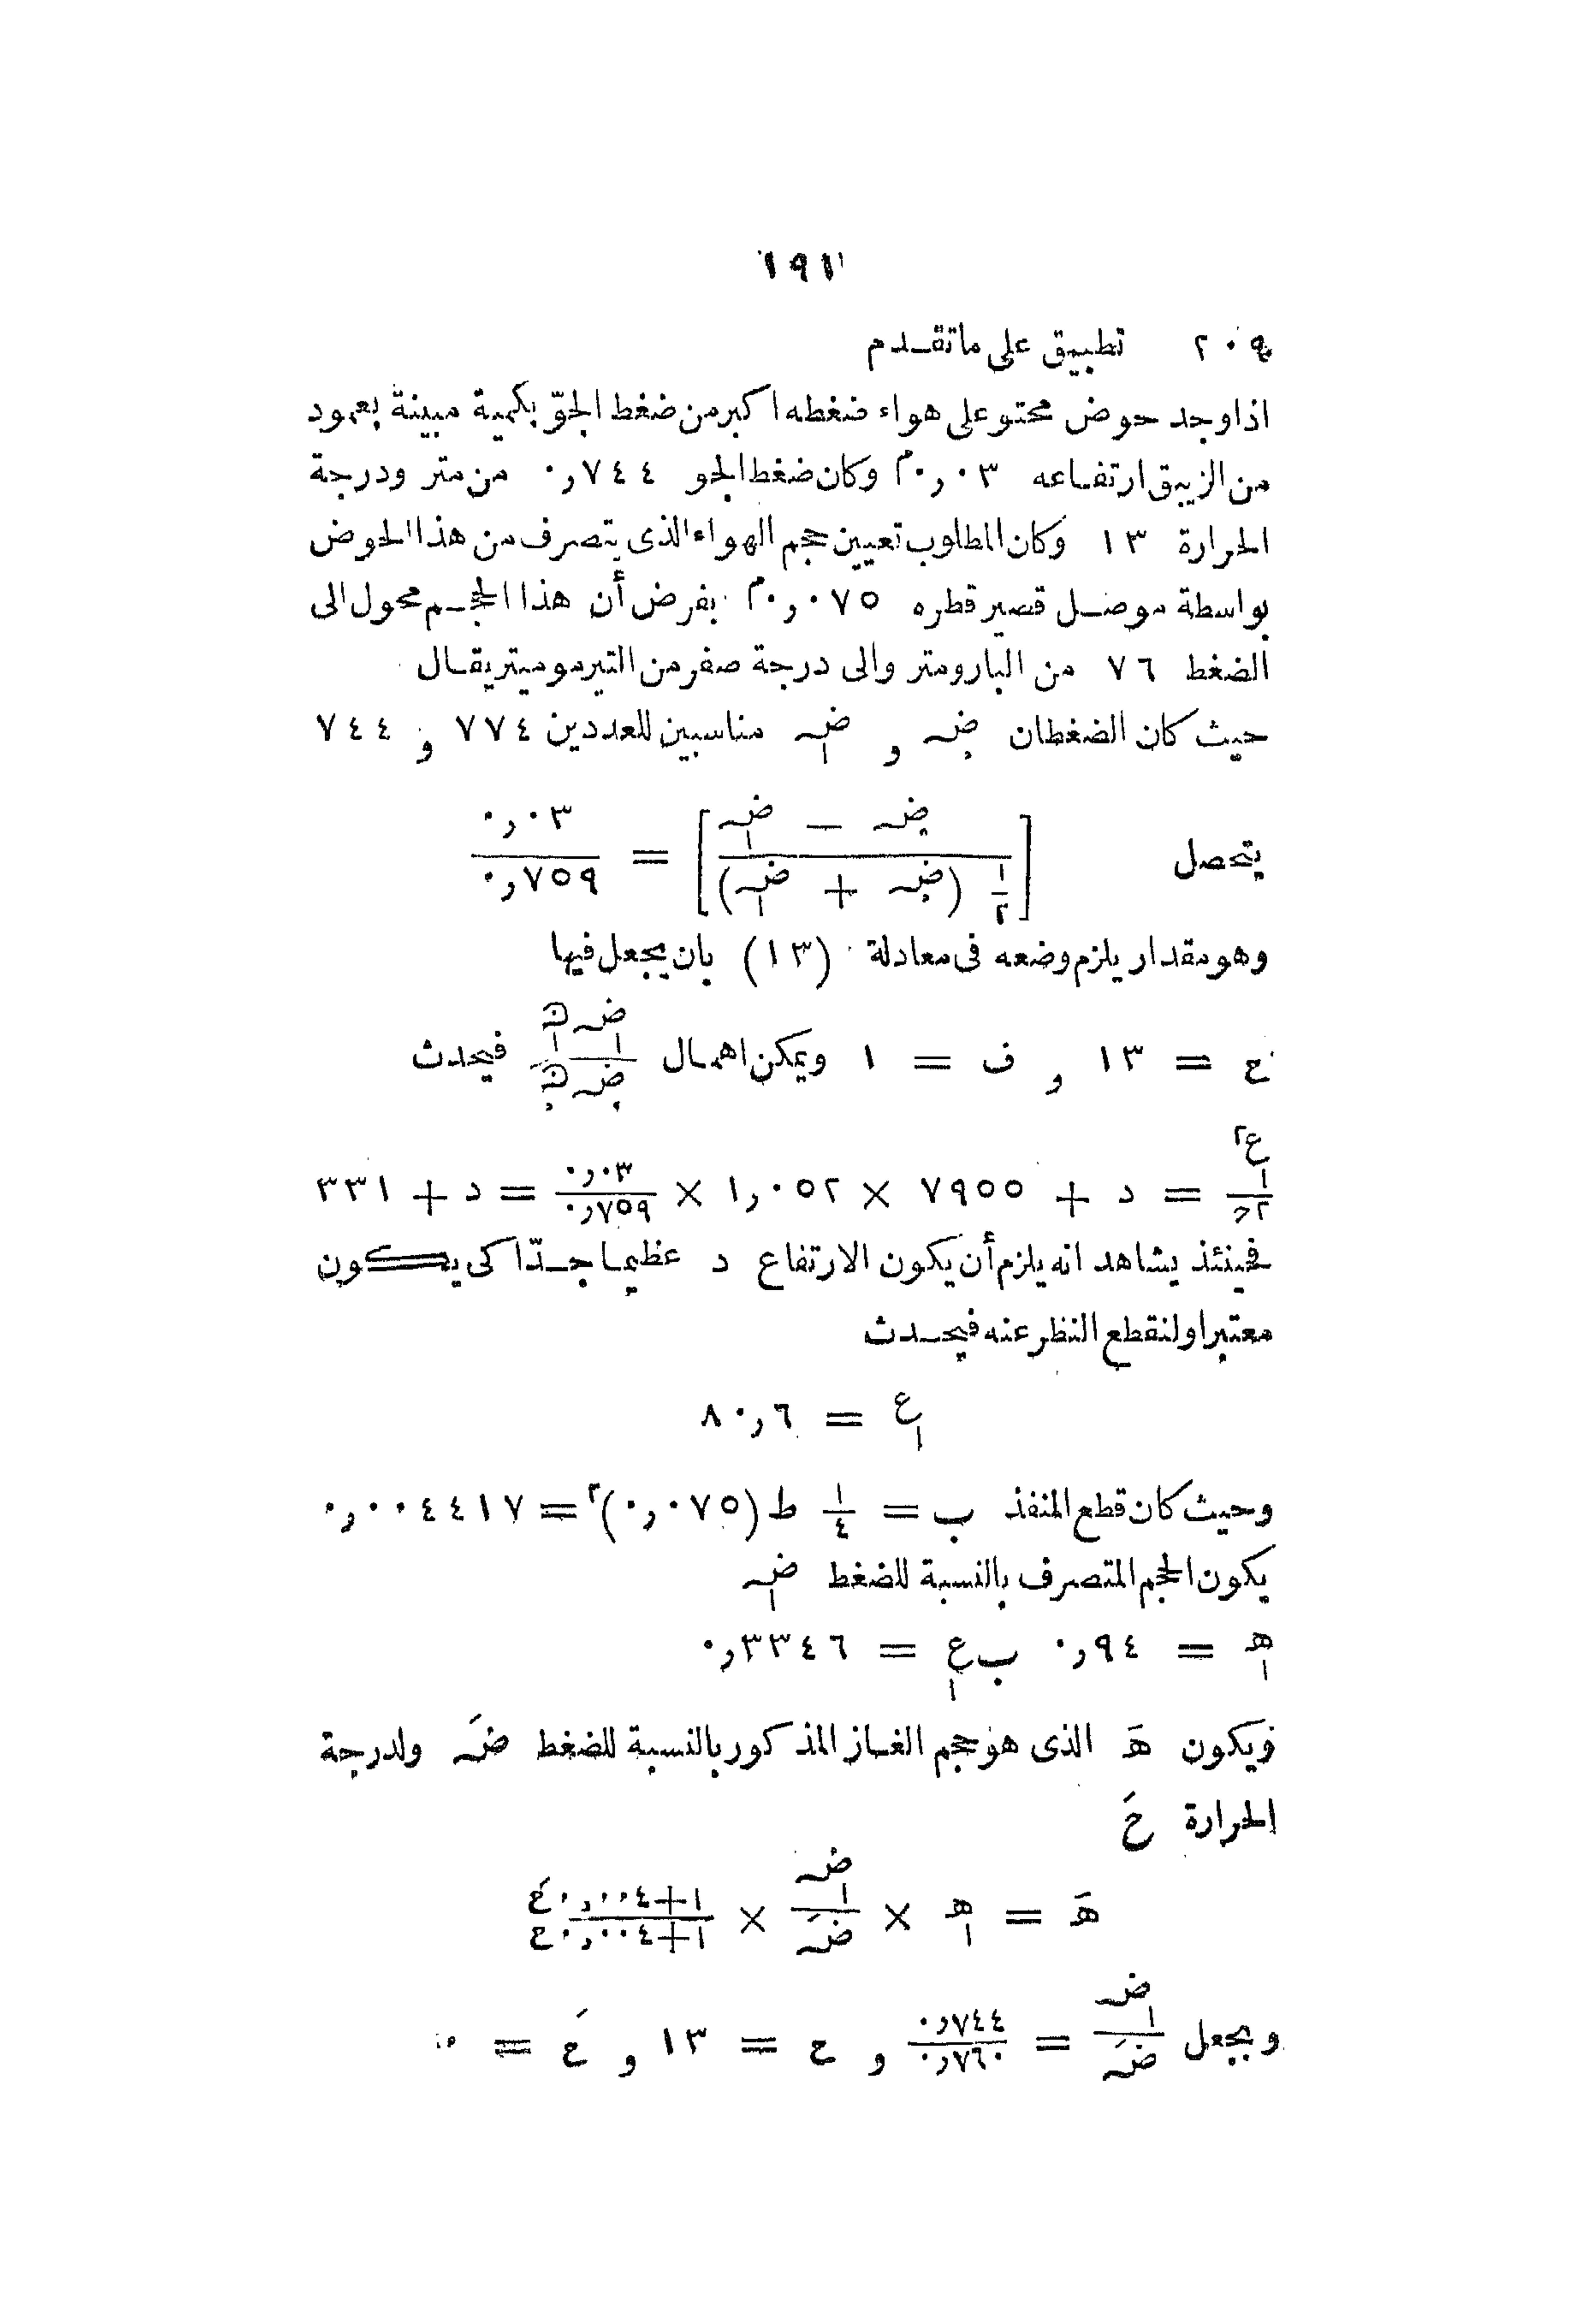 ١٩١
٢٠٩ تطبيق على ماتقدم
اذا وجد حوض محتو على هواء ضغطه اكبر من ضغط الجوّ بكمية مبينة بعمود
من الزيبق ارتفاعه ٠,٠٣م وكان ضغط الجو ٠,٧٤٤ من متر ودرجة
الحرارة ١٣ وكان المطلوب تعيين حجم الهواء الذى يتصرف من هذا الحوض
بواسطة موصل قصير قطره ٠,٠٧٥م بفرض أن هذا الحجم محول الى
الضغط ٧٦ من البارومتر والى درجة صفر من التيرموميتر يقال
حيث كان الضغطان ضہ. و ضہ١ مناسبين للعددين ٧٧٤ و ٧٤٤
يتحصل [(ضہ. − ضہ١) / (١/٢ (ضہ. + ضہ١))] = ٠,٠٣ / ٠,٧٥٩
وهو مقدار يلزم وضعه فى معادلة (١٣) بان يجعل فيها
ح = ١٣ و ف = ١ ويمكن اهمال فيحدث
ع١٢ / ٢ح = د + ٧٩٥٥ × ١,٠٥٢ × ٠,٠٣ / ٠,٧٥٩ = د + ٣٣١
فحينئذ يشاهد انه يلزم أن يكون الارتفاع د عظيما جدّا كى يكون
معتبرا ولنقطع النظر عنه فيحدث
ع١ = ٨٠,٦
وحيث كان قطع المنفذ ب = ١/٤ ط (٠,٠٧٥)٢ = ٠,٠٠٤٤١٧
يكون الحجم المتصرف بالنسبة للضغط ضہ١
هـ١ = ٠,٩٤ ب ع١ = ٠,٣٣٤٦
فيكون هَـ الذى هو حجم الغاز المذكور بالنسبة للضغط ضَہ ولدرجة
الحرارة حَ
هَـ = هـ١ × ضہ١ / ضَہ × (١+٠,٠٠٤حَ) / (١+٠,٠٠٤ح)
وبجعل ضہ١ / ضَہ = ٠,٧٤٤ / ٠,٧٦٠ و ح = ١٣ و حَ = ٠